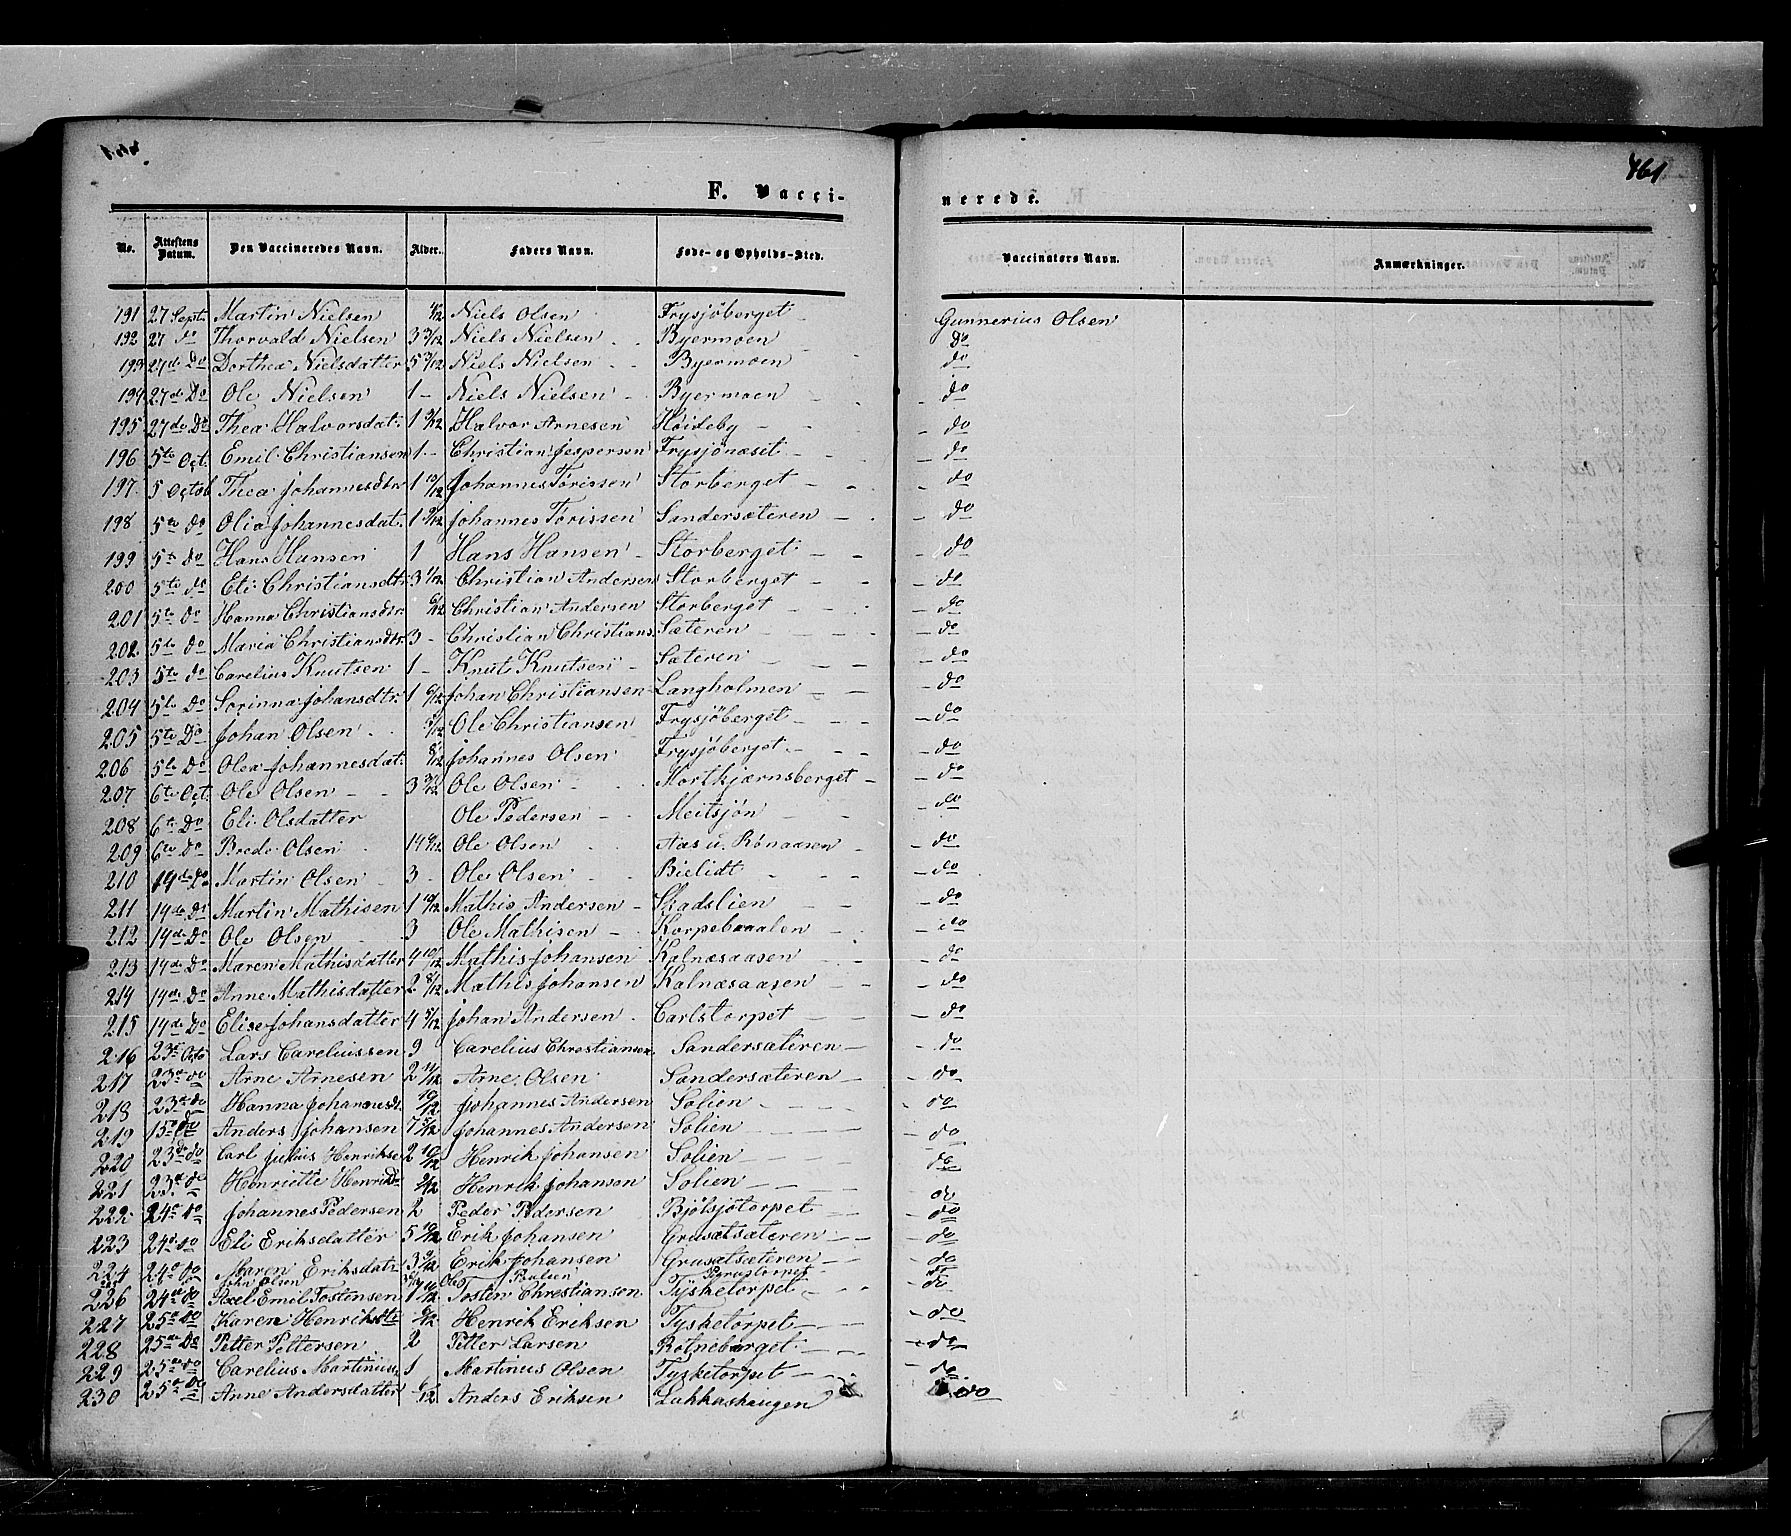 461
F. Vacci-
nerede.
No. Attestens Datum. Den Vaccineredes Navn. Alder. Faders Navn. Føde- og Opholds-Sted. Vaccinators Navn. Anmærkninger.
191 27 Sept. Martin Nielsen 4/12 Niels Olsen Frysjöberget Gunnerius Olsen
192 27 do Thorvald Nielsen 3 3/12 Niels Nielsen Byermoen do
193 27de Do Dorthea Nielsdatter 5 3/12 Niels Nielsen Byermoen do
194 27de Do Ole Nielsen 1 - Niels Nielsen Byermoen do
195 27de Do Thea Halvorsdat. 1 9/12 Halvor Arnesen Høideby do
196 5te Oct. Emil Christiansen 1 - Christian Jespersen Frysjönæsit do
197 5 Octob Thea Johannesdtr 1 10/12 Johannes Torissen Storberget do
198 5te do Olia Johannesdat. 1 9/12 Johannes Torissen Sandersæteren do
199 5te do Hans Hansen 1 Hans Hansen Storberget do
200 5te do Eli Christiansdtr 3 1/12 Christian Andersen Storberget do
201 5te do Hanna Christiansdtr. 6/12 Christian Andersen Storberget do
202 5te do Maria Christiansdtr 3 - Christian Christians. Sæteren do
203 5te Do Carelius Knutsen 1 - Knut Knutsen Sæteren do
204 5te Do Sorinna Johansdtr. 1 6/12 Johan Christiansen Langholmen do
205 5te Do Johan Olsen 5/12 Ole Christiansen Frysjöberget do
206 5te Do Olea Johannesdat. 8/12 Johannes Olsen Frysjöberget do
207 6te Oct. Ole Olsen 3 3/12 Ole Olsen Mortkjærnsberget do
208 6te Do Eli Olsdatter Ole Pedersen Meitsjön do
209 6te Do Brede Olsen 14 9/12 Ole Olsen Aas u. Rønaasen do
210 14de Do Martin Olsen 3 - Ole Olsen Bielidt do
211 14de Do Martin Mathisen 1 10/12 Mathis Andersen Skadslien do
212 14de Do Ole Olsen 3 Ole Mathisen Korpebraalen do
213 14de Do Maren Mathisdatter 4 10/12 Mathis Johansen Kalnæsaasen do
214 14de Do Anne Mathisdatter 2 8/12 Mathis Johansen Kalnæsaasen do
215 14de Do Elise Johansdatter 4 5/12 Johan Andersen Carlstorpet do
216 23de Octo Lars Careliussen 9 Carelius Christiansen Sandersæteren do
217 23de do Arne Arnesen 2 11/12 Arne Olsen Sandersæteren do
218 23de do Hanna Johannesdt. 10/12 Johannes Andersen Solien do
219 15de do Anders Johansen 7 5/12 Johannes Andersen Solien do
220 23de do Carl Julius Henrikse 2 10/12 Henrik Johansen Solien do
221 23de do Henriette Henrikdt. 9/12 Henrik Johansen Solien do
222 24de do Johannes Pedersen 2 Peder Pedersen Bjölsjötorpet do
223 24de do Eli Eriksdatter 5 10/12 Erik Johansen Grusætsæteren do
224 24de do Maren Eriksdatr. 3 9/12 Erik Johansen Grusætsæteren do
John Olsen Ole Paulsen do
226 24de do Axel Emil Tostensen 1 11/12 Tosten Christiansen Tysketorpet do
227 25de do Karen Henriksdtr 6/12 Henrik Eriksen Tysketorpet do
228 25de Do Petter Pettersen 2 Petter Larsen Rotneberget do
229 25de do Carelius Martinius. 1 Martinus Olsen Tysketorpet do
230 25de do Anne Andersdatter 6/12 Anders Eriksen Lakkashaugen do